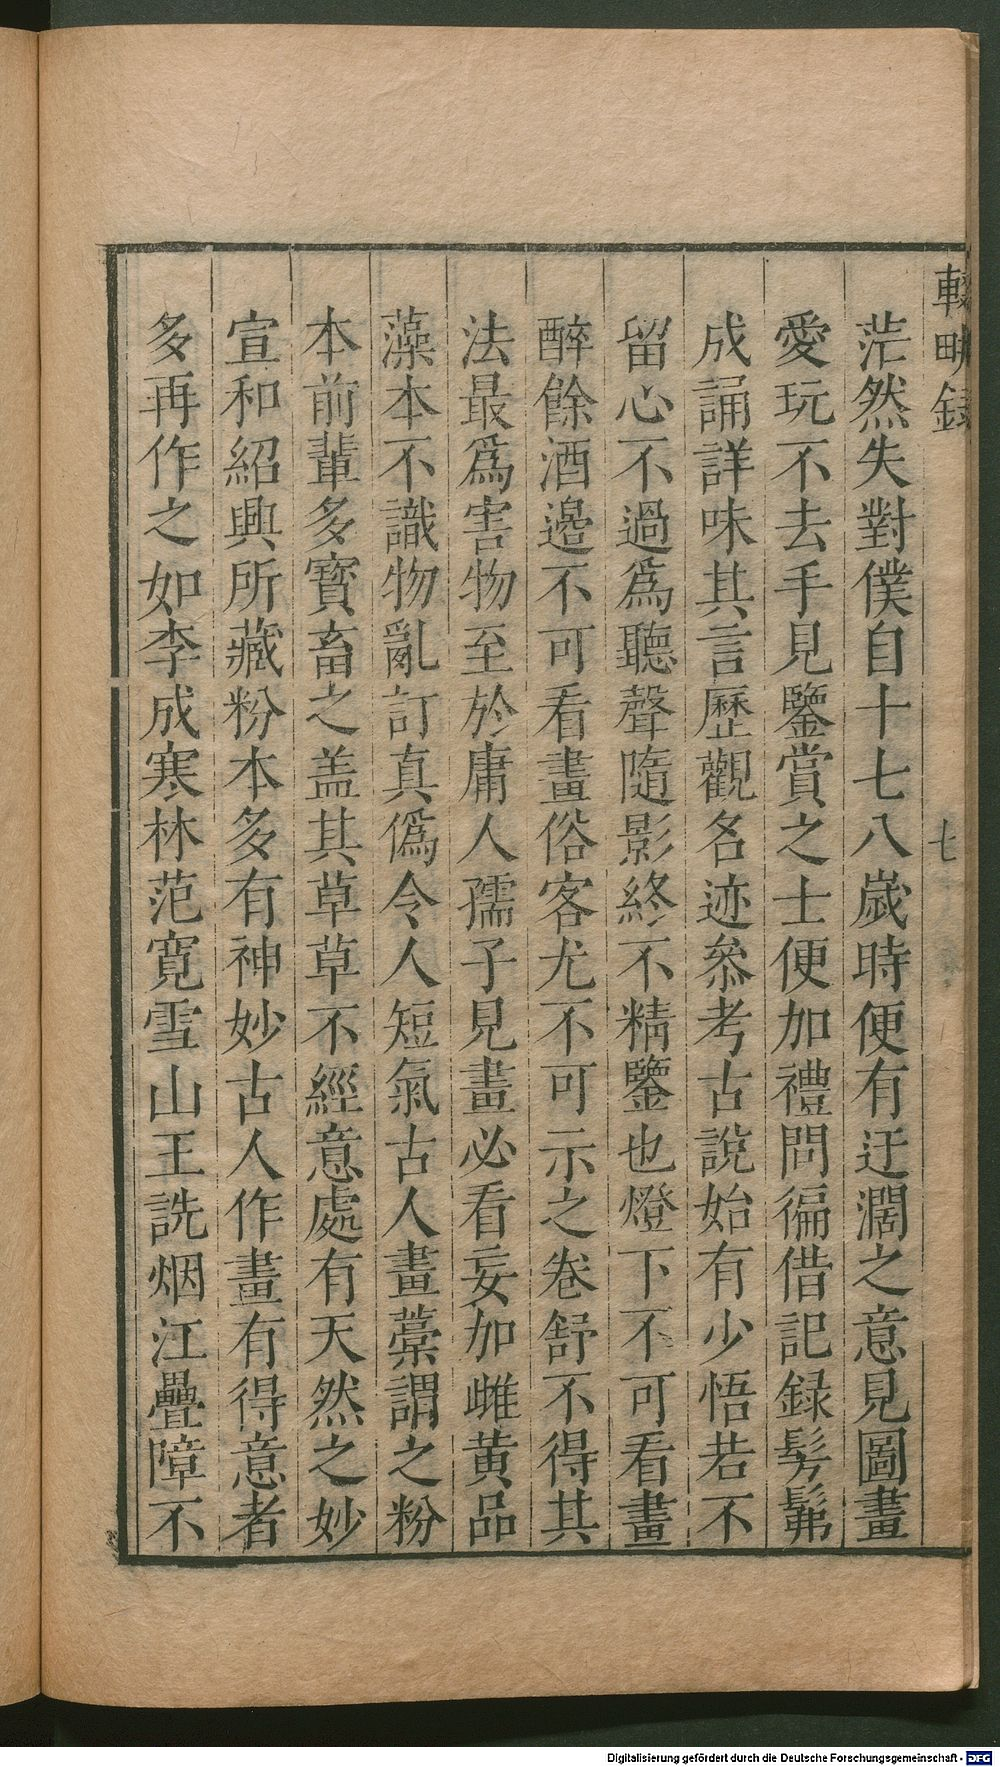 輟畊錄
七
茫然失對僕自十七八歲時便有迂濶之意見圖畫
愛玩不去手見鑒賞之士便加禮問徧借記録髣髴
成誦詳味其言歷觀名迹叅考古說始有少悟若不
留心不過爲聽聲隨影終不精鑒也燈下不可看畫
醉餘酒邉不可看畫俗客尤不可示之卷舒不得其
法最爲害物至於庸人孺子見畫必看妄加雌黄品
藻本不識物亂訂真僞令人短氣古人畫藁謂之粉
本前輩多寳畜之盖其草草不經意處有天然之妙
宣和紹興所藏粉本多有神妙古人作畫有得意者
多再作之如李成寒林范寛雪山王詵烟江疊障不
Digitalisierung gefördert durch die Deutsche Forschungsgemeinschaft - DFG